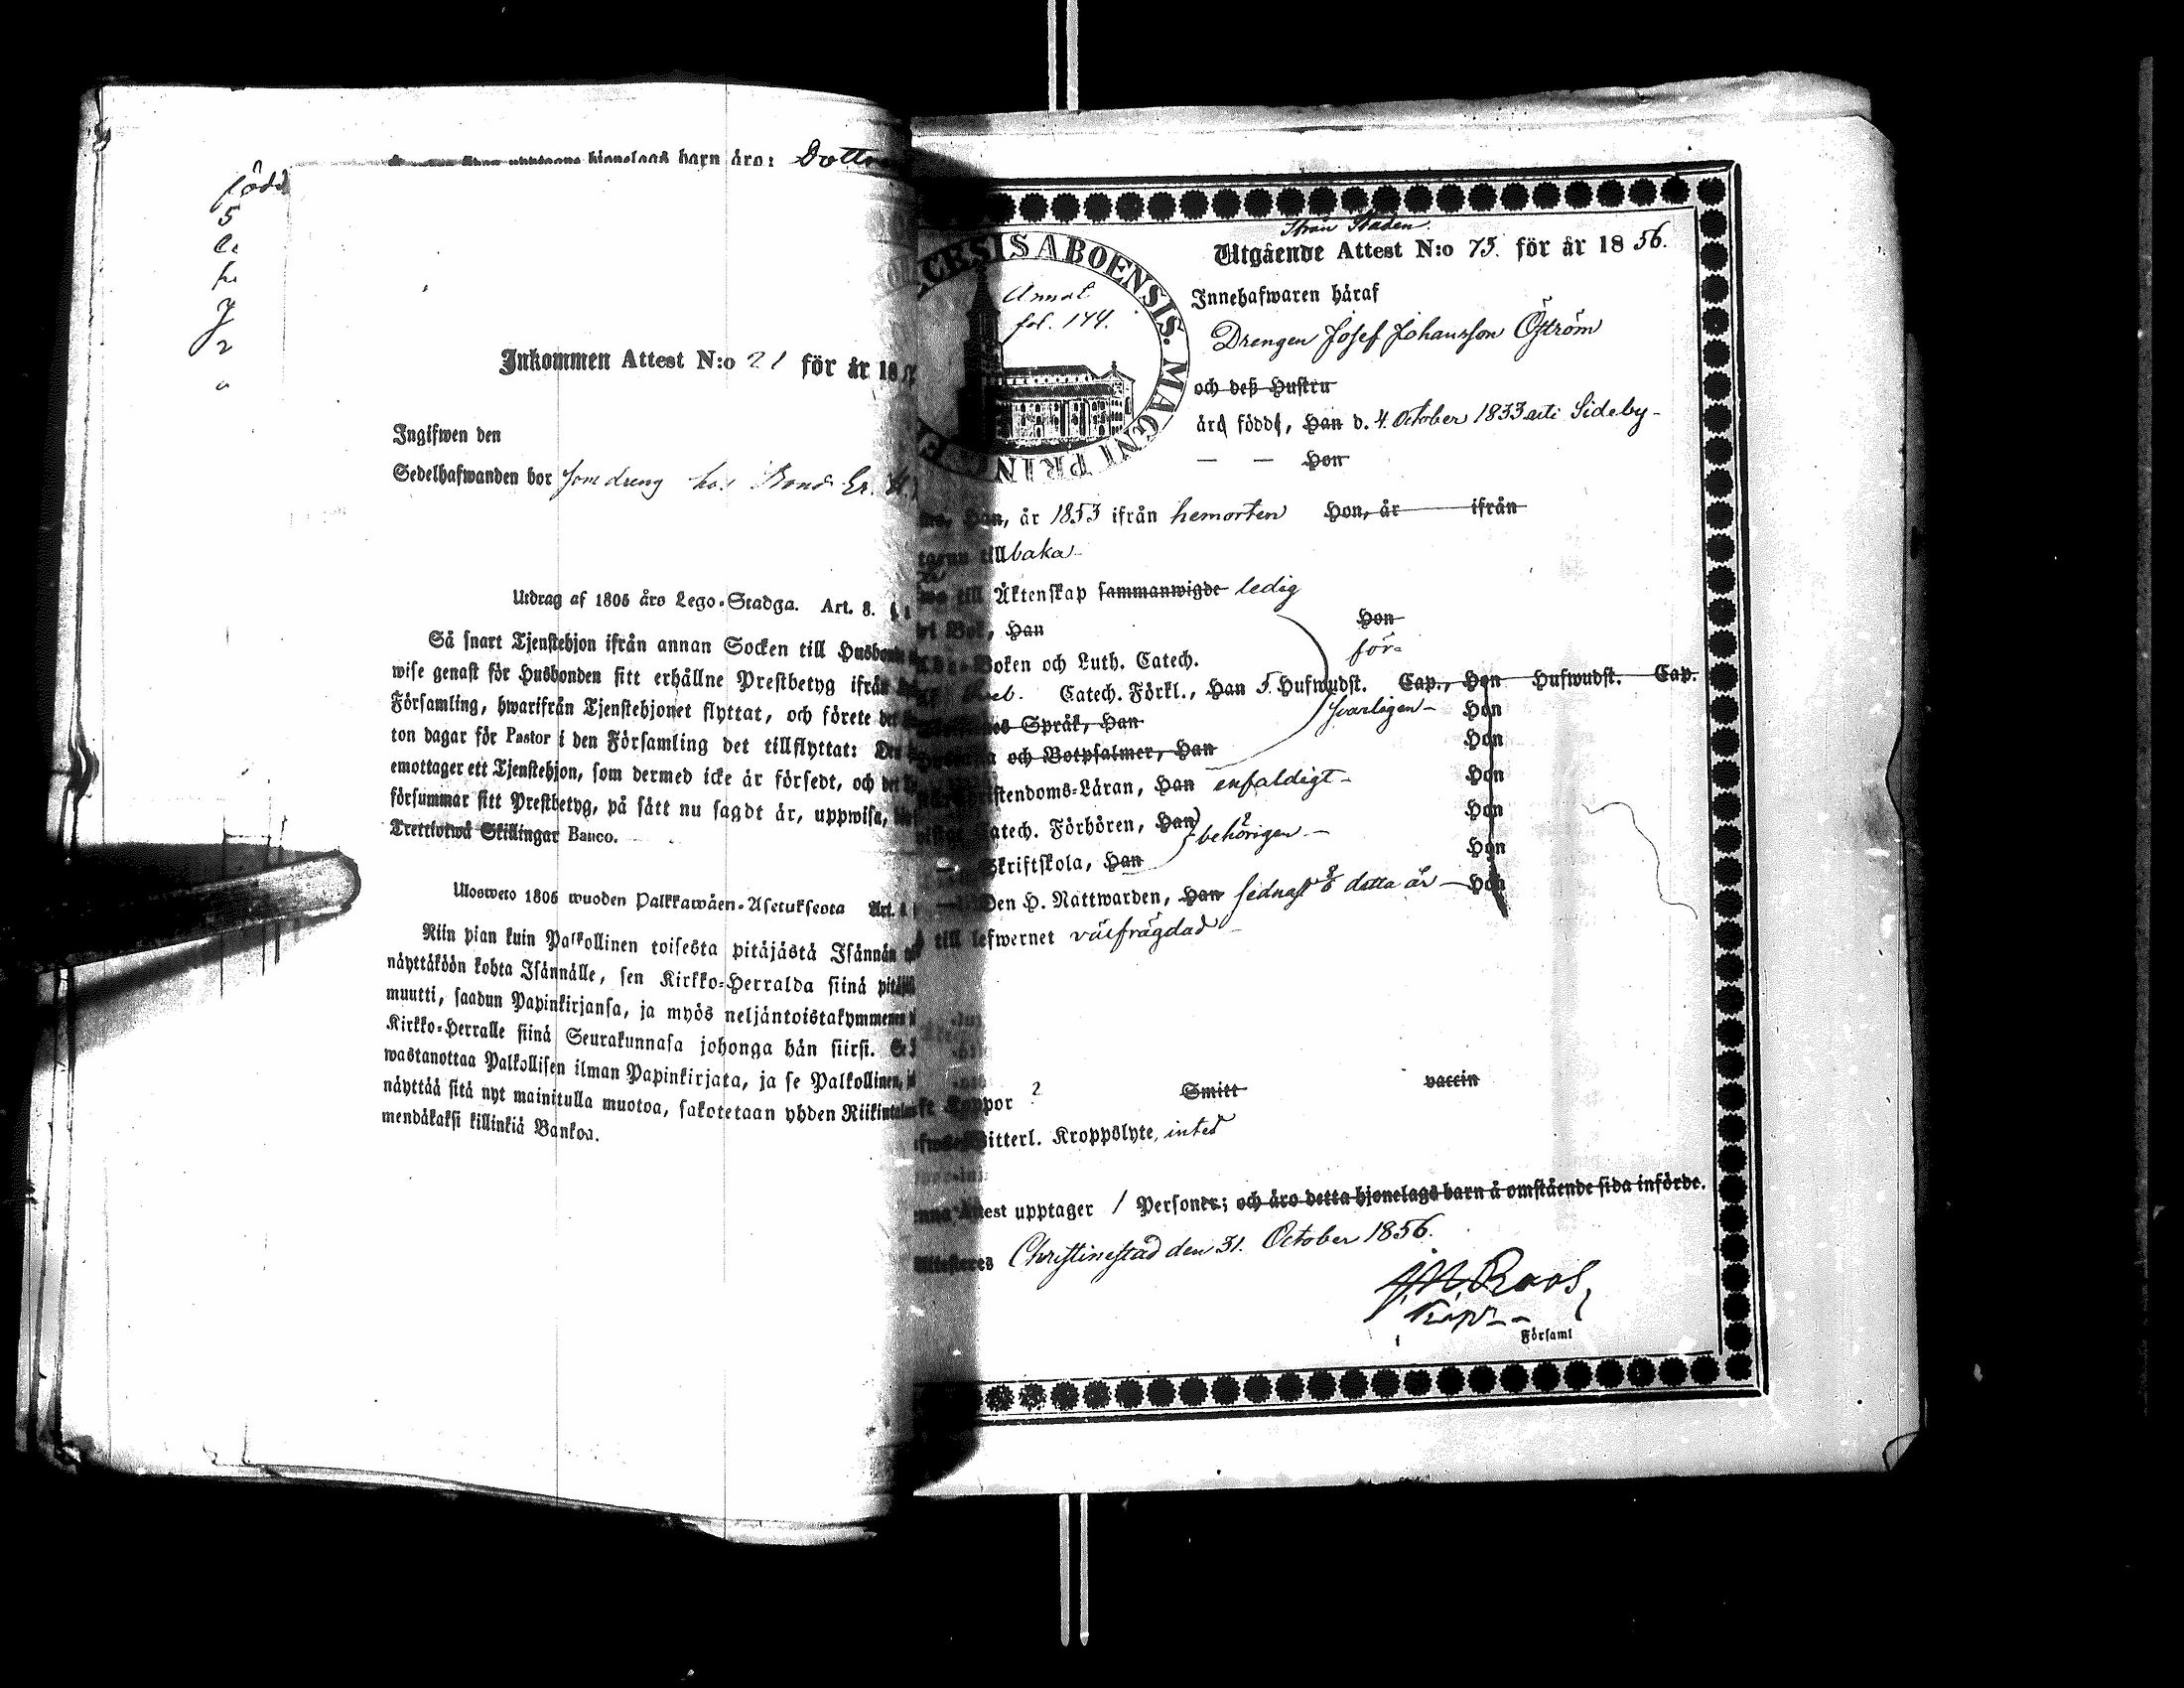 barn äro:
född
5
Inkommen Attest N:o 21 för år 18
Ingifwen den
Sedelhafwanden bor som dreng hos Bond.
Utdrag af 1805 års Lego-Stadga. Art. 8. §
Så snart Tjenstehjon ifrån annan Socken till Husbonde
wise genast för Husbonden sitt erhållne Prestbetyg ifrån
Församling, hwarifrån Tjenstehjonet flyttat, och förete det
ton dagar för Pastor i den Församling det tillflyttat: Den
emottager ett Tjenstehjon, som dermed icke är försedt, och det
försummar sitt Prestbetyg, på sätt nu sagdt är, uppwisa,
Trettiotwå Skillingar Banco.
Ulosweto 1805 wuoden Palkkawäen-Asetuksesta Art.
Niin pian kuin Palkollinen toisesta pitäjästä Isännän
näyttäköön kohta Isännälle, sen Kirkko-Herralda siinä
muutti, saadun Papinkirjansa, ja myös neljäntoistakymmenen
Kirkko-Herralle siinä Seurakunnasa johonga hän siirsi.
wastanottaa Palkollisen ilman Papinkirjata, ja se Palkollinen,
näyttää sitä nyt mainitulla muotoa, sakotetaan yhden
mendäkaksi killinkiä Bankoa.
ifrån Staden.
Utgående Attest N:o 75. för år 1856.
CESIS ABOENSIS. MAGNI PRINC
Annot
fol. 144.
Innehafwaren häraf
Drengen Josef Johansson Öström
och deß Hustru
äro födde, Han d. 4. October 1833 uti Sideby
Hon
Han, år 1853 ifrån hemorten Hon, år ifrån
tillbaka
till Äktenskap sammanwigde ledig
Hon
Bok, Han
för-
Boken och Luth. Catech.
Catech. Förkl., Han 5. Hufwudst. Cap., Hon Hufwudst. Cap.
svarligen Hon
Språk, Han
Hon
och Botpsalmer, Han
Hon
Christendoms-Läran, Han enfaldigt
Hon
Catech. Förhören, Han behörigen
Hon
Skriftskola, Han
Den H. Nattwarden, Han sednast 8/6 detta år Hon
till lefwernet välfrägdad
Koppor
Smitt vaccin
witterl. Kroppslyte, intet
Attest upptager 1 Personer; och äro detta hjonelags barn å omstående sida införde.
Attesteres Christinestad den 31. October 1856.
J. M. Roos
Församl